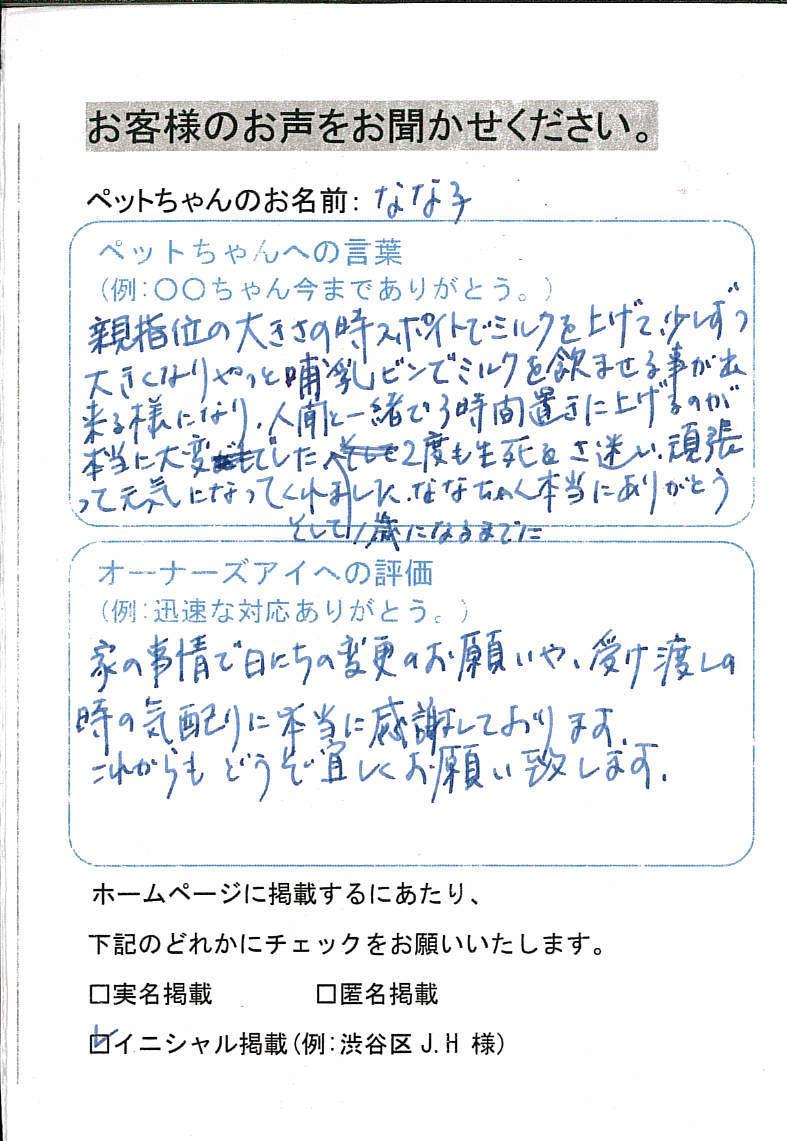 お客様のお声をお聞かせください。
ペットちゃんのお名前: なな子
ペットちゃんへの言葉
(例:〇〇ちゃん今までありがとう。)
親指位の大きさの時スポイトでミルクを上げて、少しずつ
大きくなりやっと哺乳ビンでミルクを飲ませる事が出
来る様になり、人間と一緒で3時間置きに上げるのが
本当に大変でした 2度も生死をさ迷い、頑張
って元気になってくれました、ななちゃん本当にありがとう
そして1歳になるまでに
オーナーズアイへの評価
(例:迅速な対応ありがとう。)
家の事情で日にちの変更のお願いや、受け渡しの
時の気配りに本当に感謝しております。
これからもどうぞ宜しくお願い致します。
ホームページに掲載するにあたり、
下記のどれかにチェックをお願いいたします。
□実名掲載 □匿名掲載
☑イニシャル掲載(例:渋谷区 J.H 様)